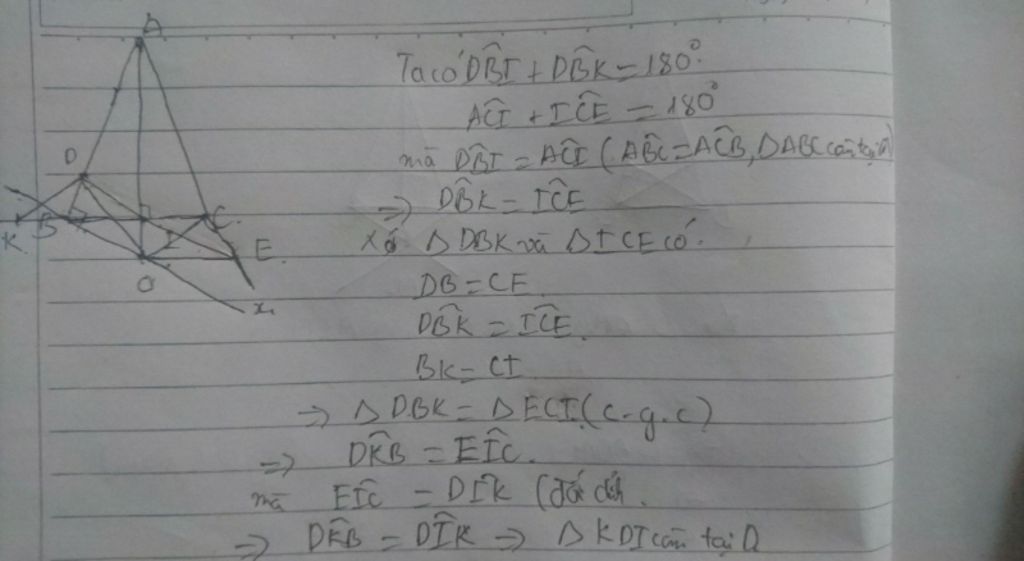 A
D
K
B
I
C
E
O
x
Ta có DB̂I + DB̂K = 180°.
AĈI + IĈE = 180°
mà DB̂I = AĈI (AB̂C = AĈB, ΔABC cân tại A)
=> DB̂K = IĈE
Xét Δ DBK và Δ ICE có.
DB = CE
DB̂K = IĈE.
BK = CI
=> Δ DBK = Δ ECI (c.g.c)
=> DK̂B = EÎC.
mà EÎC = DÎK (đối đỉnh.
=> DK̂B = DÎK => Δ KDI cân tại D